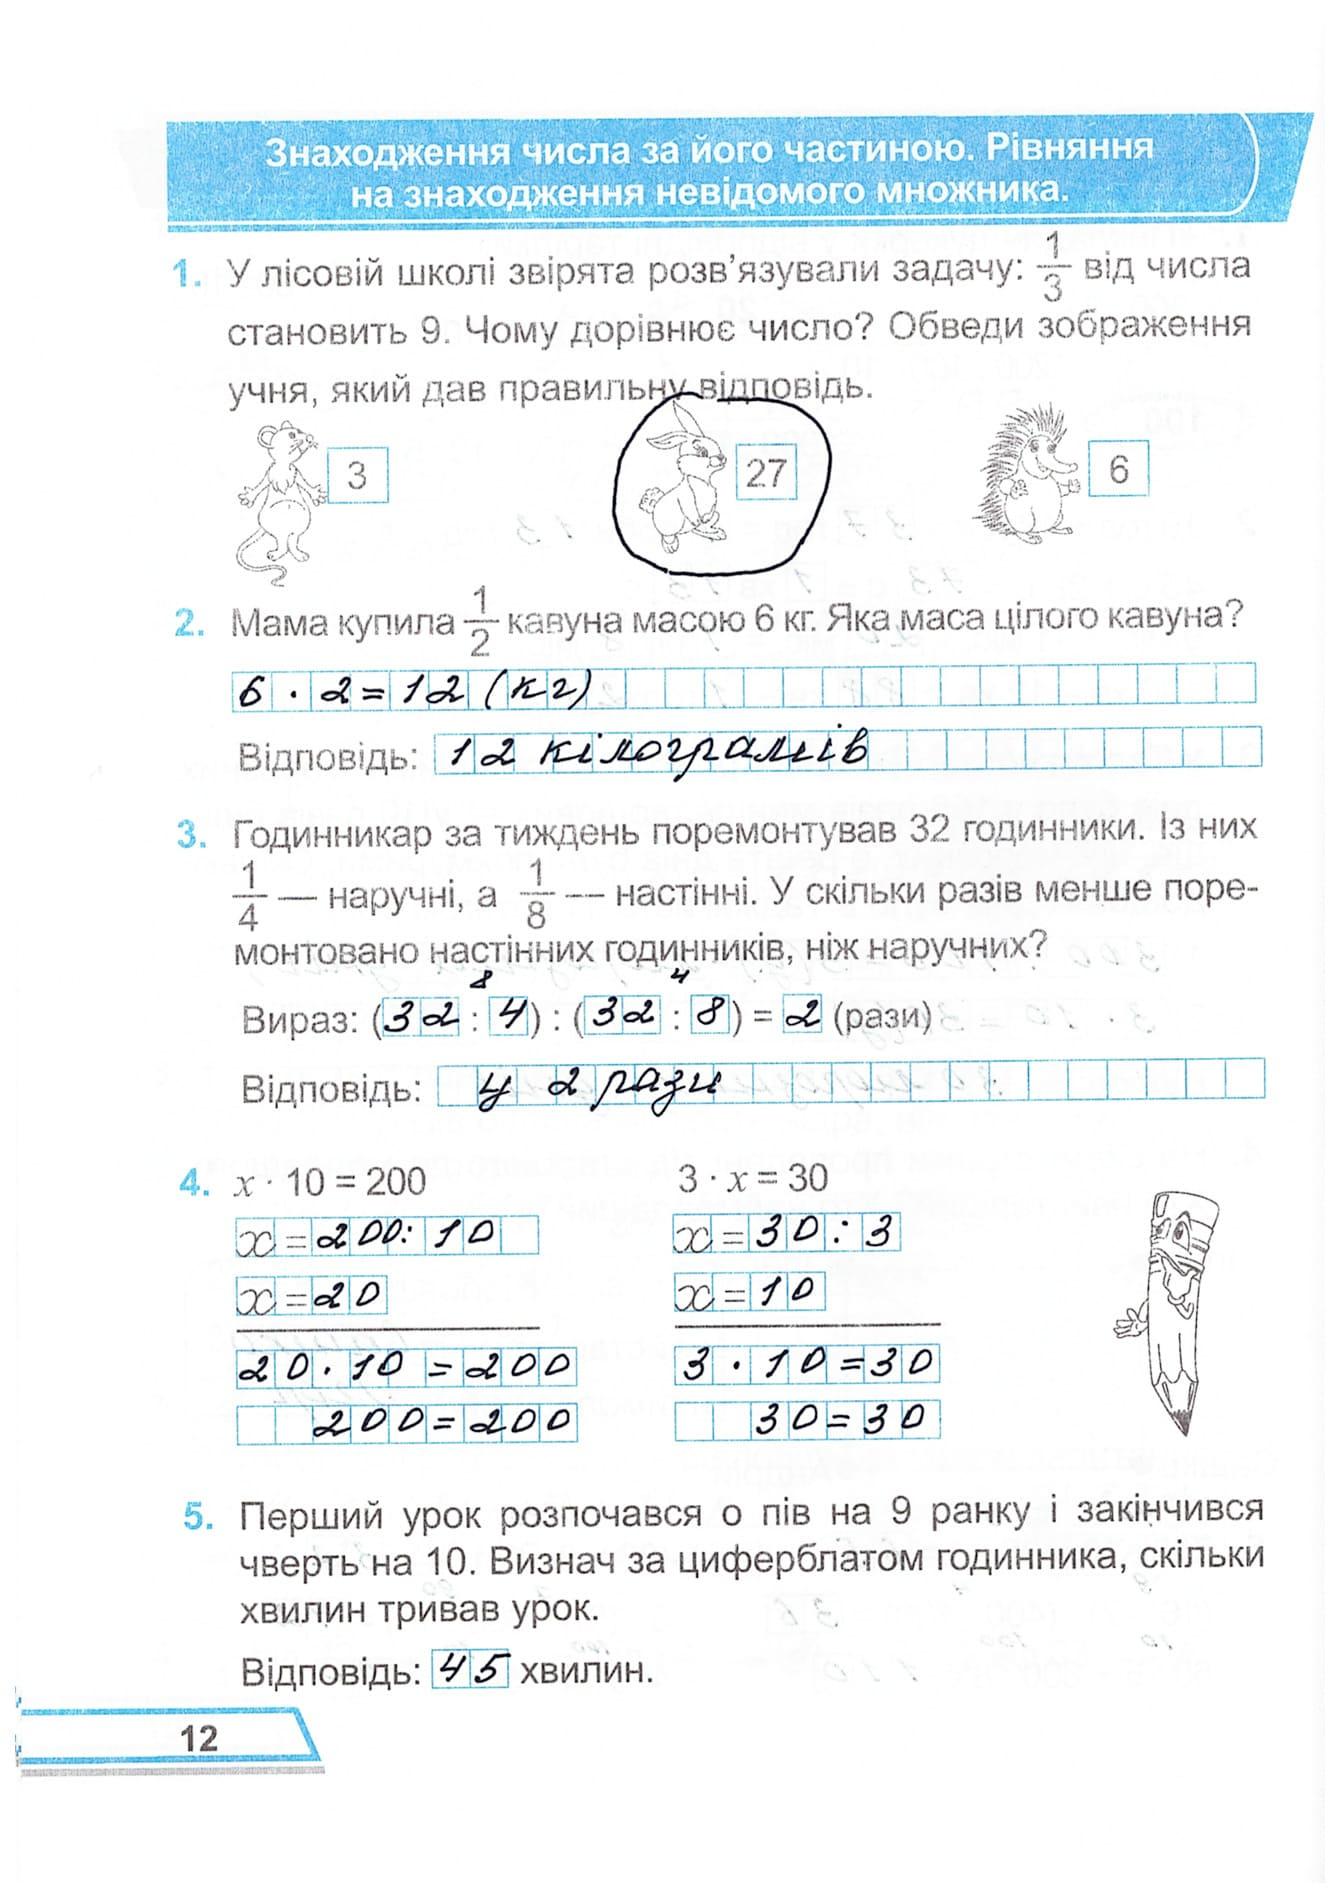 Знаходження числа за його частиною. Рівняння
на знаходження невідомого множника.
1. У лісовій школі звірята розв'язували задачу: 1/3 від числа
становить 9. Чому дорівнює число? Обведи зображення
учня, який дав правильну відповідь.
3 27 6
2. Мама купила 1/2 кавуна масою 6 кг. Яка маса цілого кавуна?
6 · 2 = 12 (кг)
Відповідь: 12 кілограмів
3. Годинникар за тиждень поремонтував 32 годинники. Із них
1/4 — наручні, а 1/8 — настінні. У скільки разів менше поре-
монтовано настінних годинників, ніж наручних?
8 4
Вираз: (32 : 4) : (32 : 8) = 2 (рази)
Відповідь: у 2 рази
4. x · 10 = 200 3 · x = 30
x = 200 : 10 x = 30 : 3
x = 20 x = 10
20 · 10 = 200 3 · 10 = 30
200 = 200 30 = 30
5. Перший урок розпочався о пів на 9 ранку і закінчився
чверть на 10. Визнач за циферблатом годинника, скільки
хвилин тривав урок.
Відповідь: 45 хвилин.
12